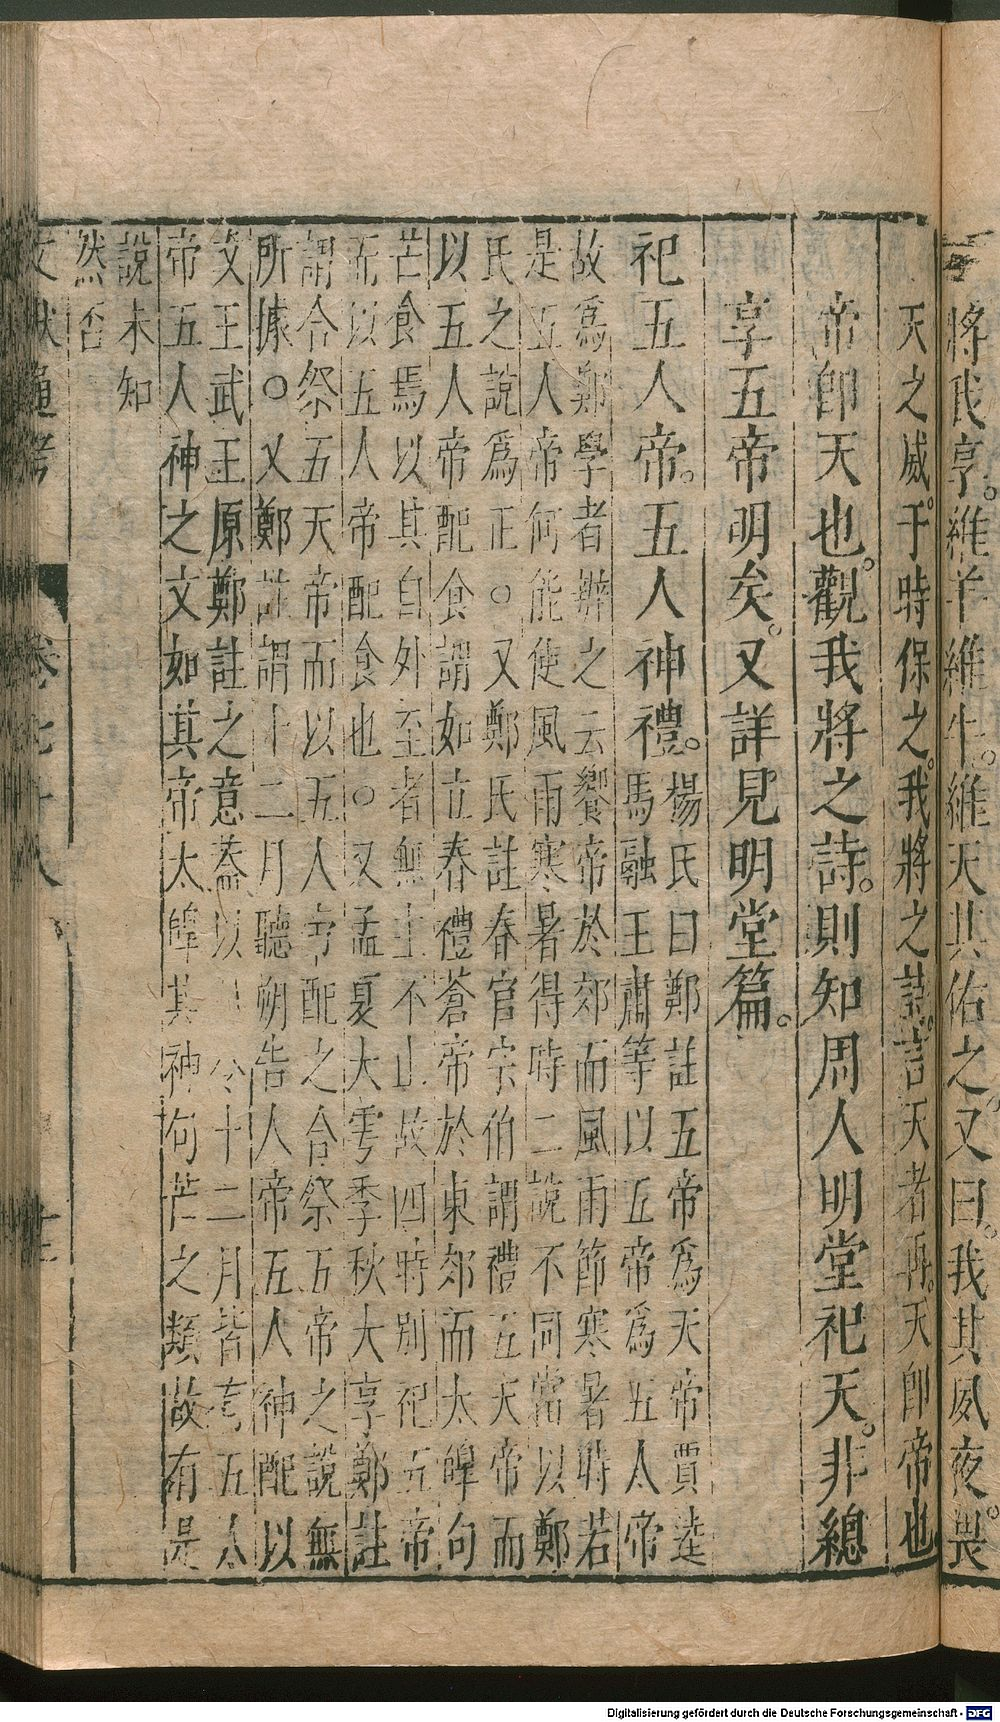 將我享。維羊維牛。維天其佑之。又曰。我其夙夜。畏
天之威。于時保之。我將之詩。言天者再。天卽帝也
帝卽天也。觀我將之詩。則知周人明堂祀天。非總
享五帝明矣。又詳見明堂篇。
祀五人帝。五人神禮。楊氏曰鄭註五帝爲天帝賈逵
馬融王肅等以五帝爲五太帝
故爲鄭學者辨之云饗帝於郊而風雨節寒暑時若
是五人帝何能使風雨寒暑得時二說不同當以鄭
氏之說爲正○又鄭氏註春官宗伯謂禮五天帝而
以五人帝配食謂如立春禮蒼帝於東郊而太皥句
芒食焉以其自外至者無主不止故四時別祀五帝
而以五人帝配食也○又孟夏大雩季秋大享鄭註
謂合祭五天帝而以五人帝配之合祭五帝之說無
所據○又鄭註謂十二月聽朔告人帝五人神配以
文王武王原鄭註之意葢以 令十二月皆有五人
帝五人神之文如其帝太皥其神句芒之類故有是
說未知
然否
文獻通考 卷七十八 十三
Digitalisierung gefördert durch die Deutsche Forschungsgemeinschaft - DFG